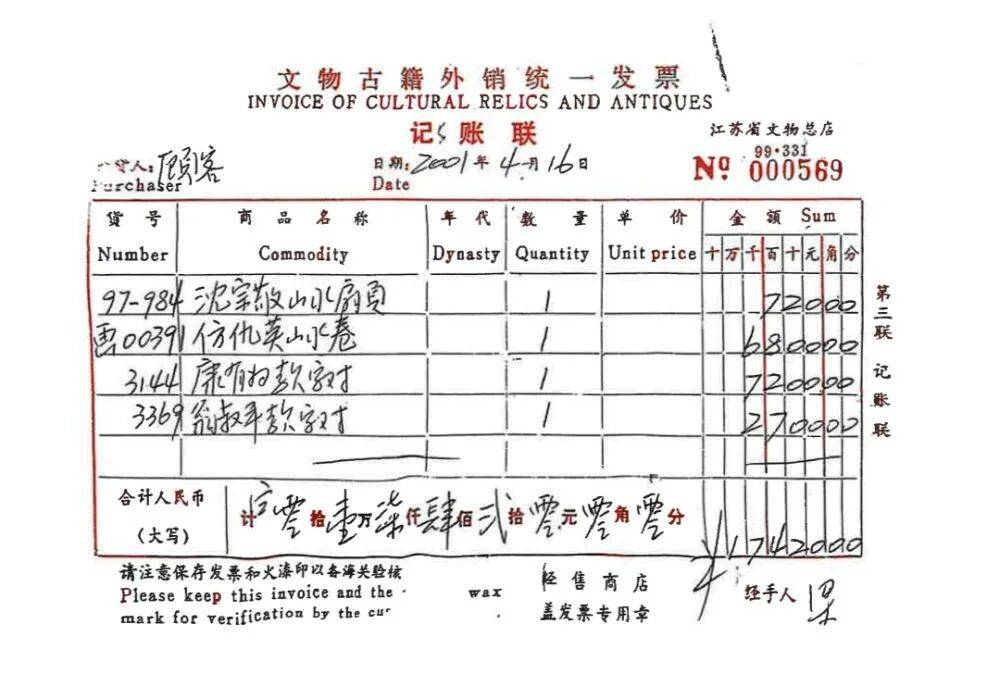 文物古籍外销统一发票
INVOICE OF CULTURAL RELICS AND ANTIQUES
记账联
江苏省文物总店
货人: 顾客
Purchaser
日期: 2001年4月16日
Date
99·331
Nº 000569
货号 商品名称 年代 数量 单价 金额 Sum
Number Commodity Dynasty Quantity Unit price 十万千百十元角分
97-984 沈宗敬山水扇页 1 72000
画00391 仿仇英山水卷 1 680000
3144 康有为款字对 1 720000
3369 翁叔平款字对 1 270000
合计人民币
(大写)
计 零拾壹万柒仟肆佰贰拾零元零角零分
¥1742000
请注意保存发票和火漆印以备海关验核
Please keep this invoice and the wax
mark for verification by the cus
经售商店
盖发票专用章
经手人 梁
第三联 记账联